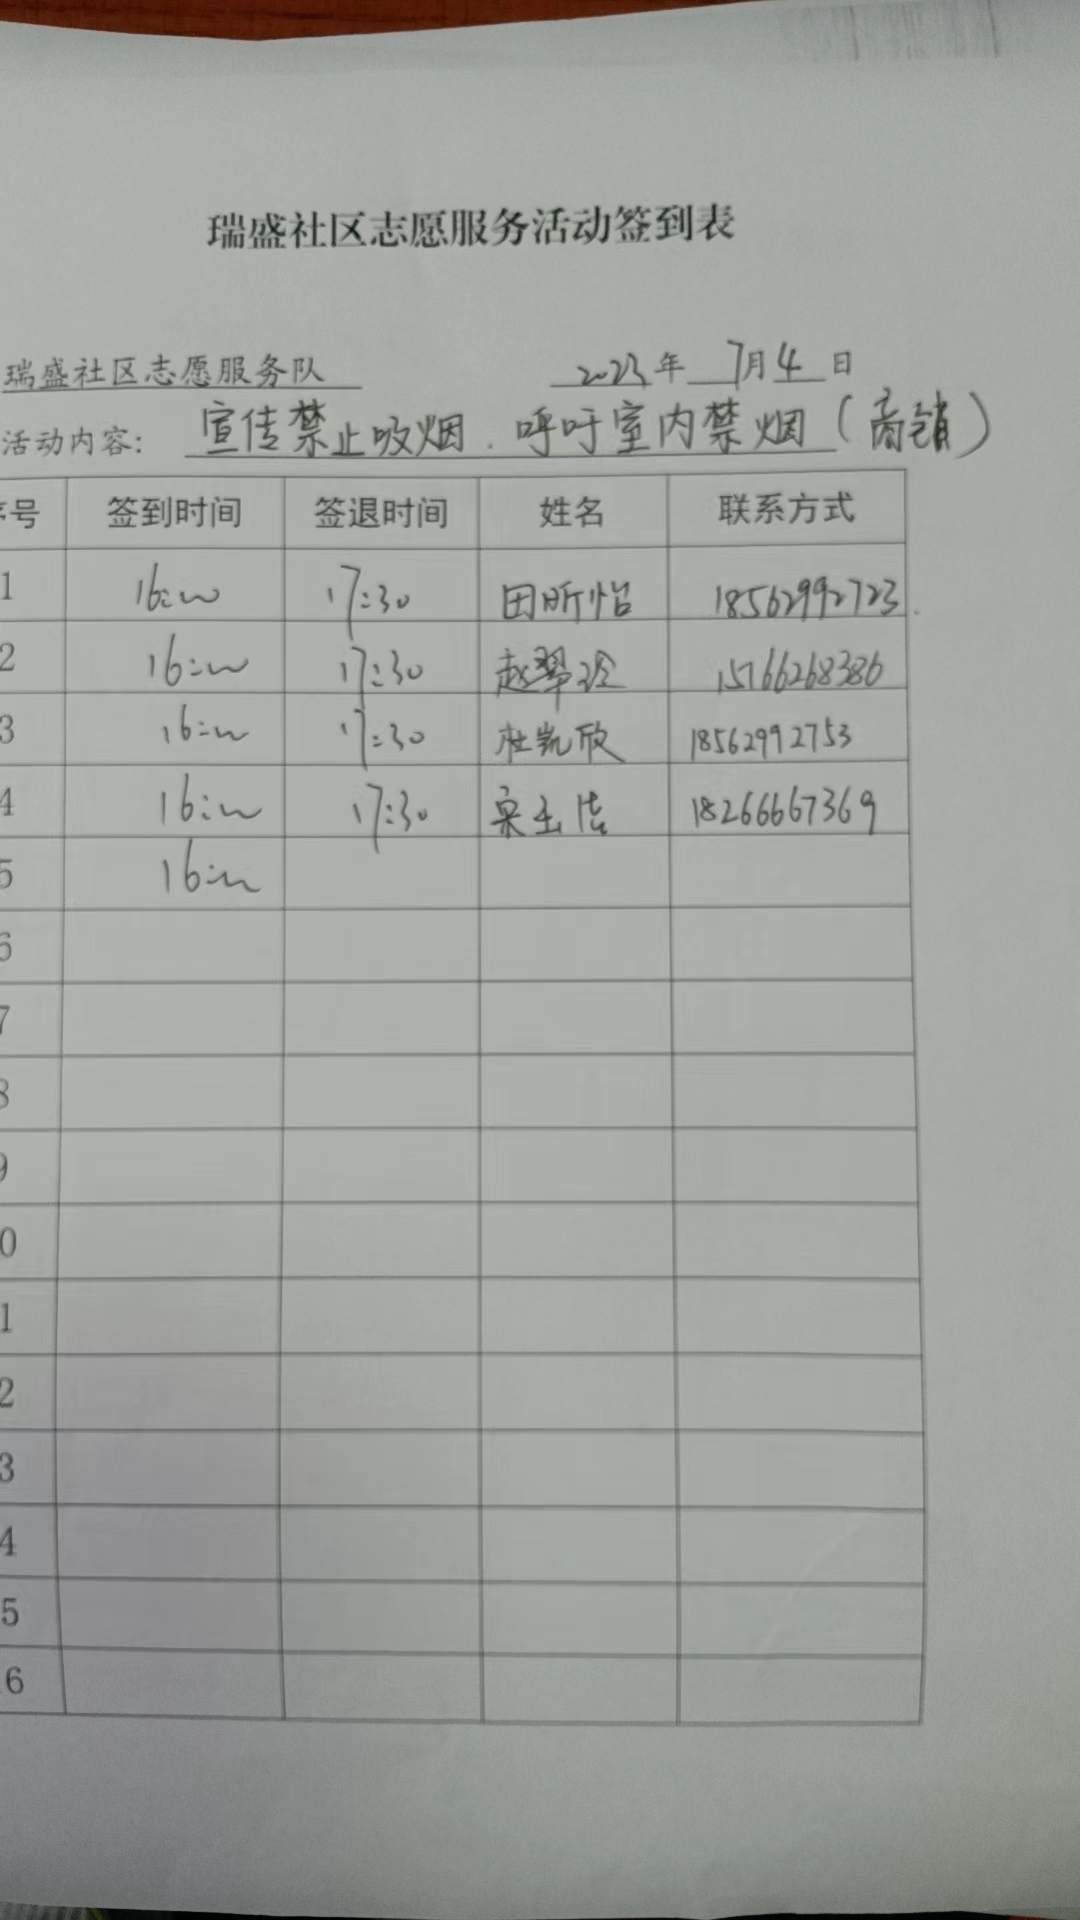 瑞盛社区志愿服务活动签到表
瑞盛社区志愿服务队 2023年 7月4日
活动内容: 宣传禁止吸烟.呼吁室内禁烟(商铺)
序号 签到时间 签退时间 姓名 联系方式
1 16:00 17:30 田昕怡 18562992723
2 16:00 17:30 赵翠玲 15766268386
3 16:00 17:30 杜凯欣 18562992753
4 16:00 17:30 18266667369
5 16:00
6
7
8
9
0
1
2
3
4
5
16